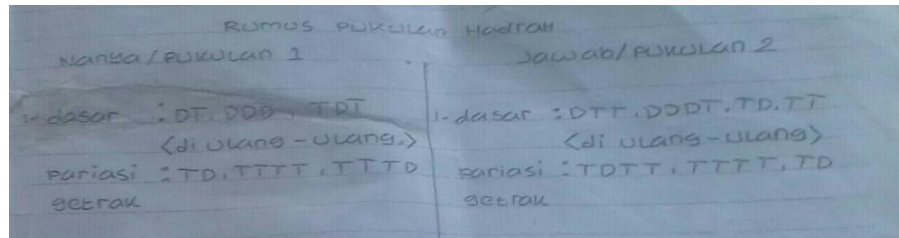 Rumus Pukulan Hadrah
Nanya/Pukulan 1
1-dasar : DT. DDD. TDT
<di ulang-ulang.>
Pariasi : TD. TTTT. TTTD
getrak
Jawab/Pukulan 2
1-dasar : DTT. DDDT. TD. TT
<di ulang-ulang>
Pariasi : TDTT. TTTT. TD
getrak